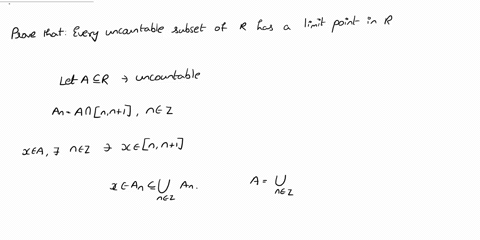 Prove that: Every uncountable subset of R has a limit point in R
Let A ⊆ R → uncountable
An = A ∩ [n, n+1], n ∈ Z
x ∈ A, ∃ n ∈ Z ∋ x ∈ [n, n+1]
x ∈ An ⊆ ⋃ n∈Z An. A = ⋃ n∈Z